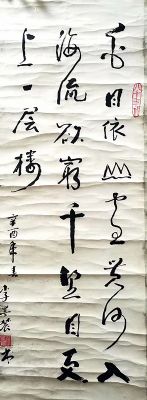 白日依山尽黄河入
海流欲窮千里目更
上一层楼
辛酉年春